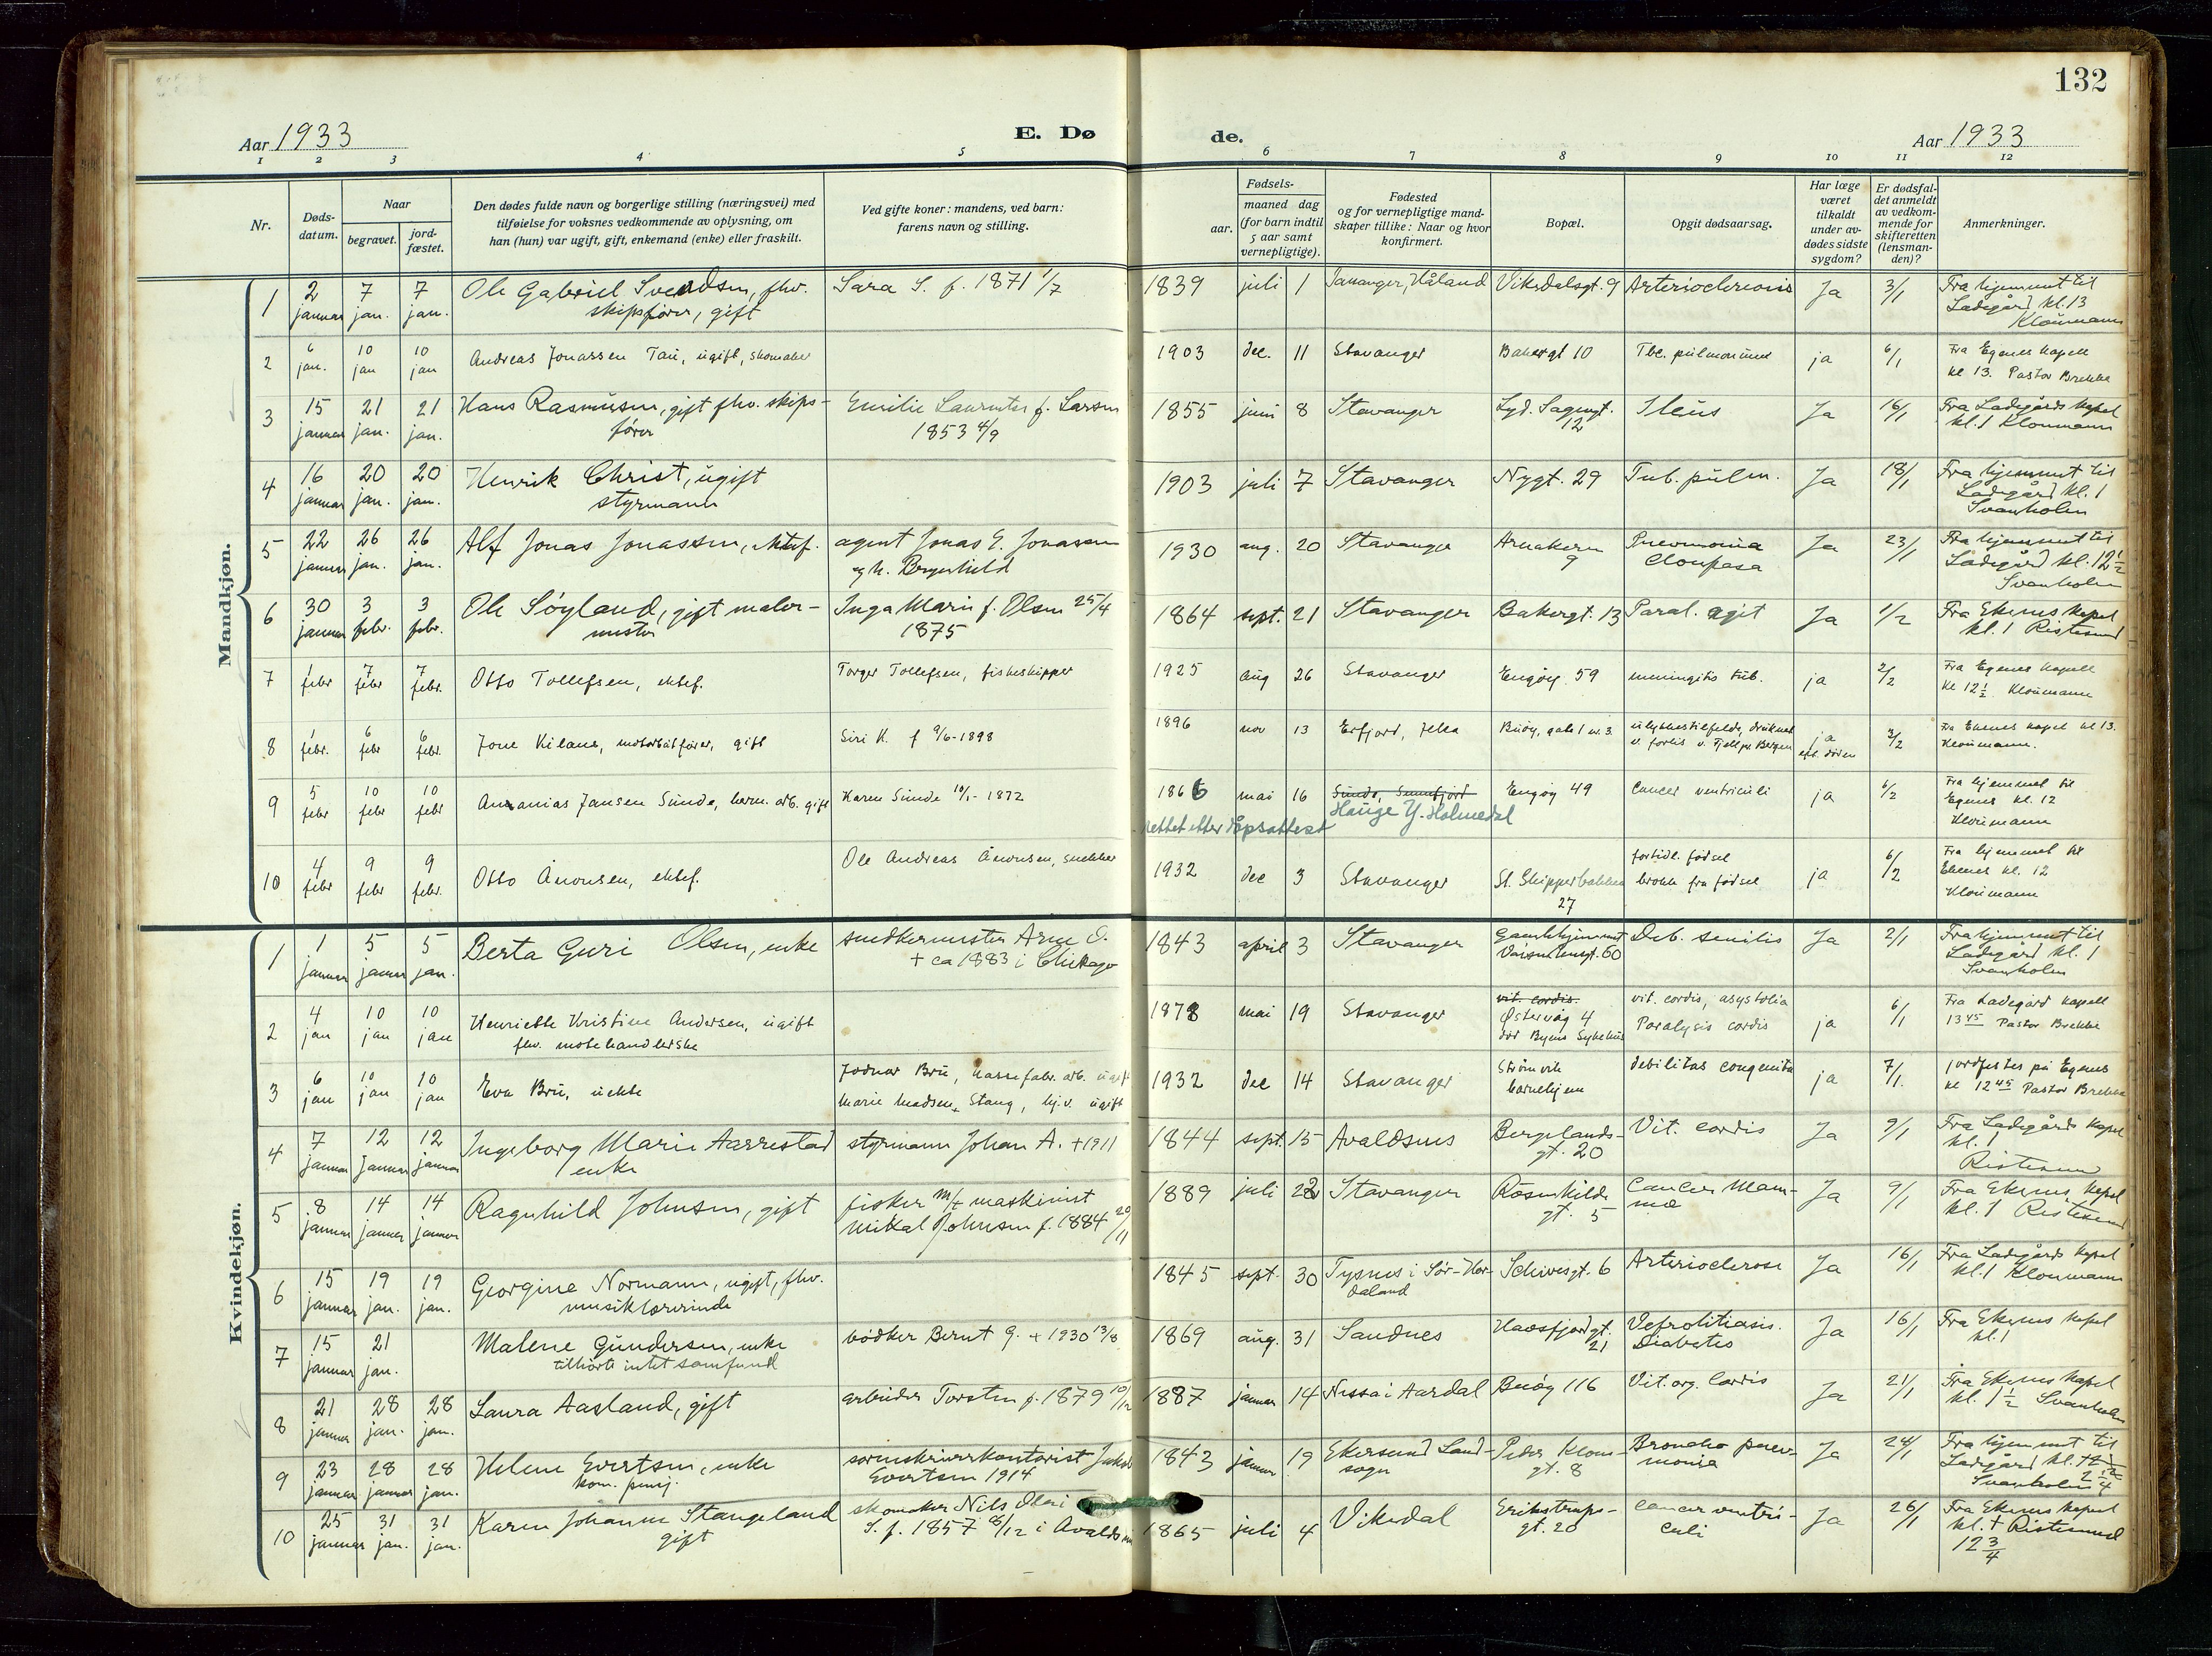 132
Aar 1933
E. Dø
de.
Aar 1933
1 2 3 4 5 6 7 8 9 10 11 12
Nr.
Døds-
datum.
Naar
begravet.
jord-
fæstet.
Den dødes fulde navn og borgerlige stilling (næringsvei) med
tilføielse for voksnes vedkommende av oplysning, om
han (hun) var ugift, gift, enkemand (enke) eller fraskilt.
Ved gifte koner: mandens, ved barn:
farens navn og stilling.
Fødsels-
aar.
maaned dag
(for barn indtil
5 aar samt
vernepligtige).
Fødested
og for vernepligtige mand-
skaper tillike: Naar og hvor
konfirmert.
Bopæl.
Opgit dødsaarsag.
Har læge
været
tilkaldt
under av-
dødes sidste
sygdom?
Er dødsfal-
det anmeldt
av vedkom-
mende for
skifteretten
(lensman-
den)?
Anmerkninger.
Mandkjøn.
1 2 januar 7 jan. 7 jan. Ole Gabriel Svendsen, fhv.
skipsfører, gift
Sara S. f. 1871 1/7
1839 juli 1 Tananger, Håland Vikedalsgt. 9 Arteriosclerosis Ja 3/1 Fra hjemmet til
Ladegård kl. 13
Kloumann
2 6 jan. 10 jan 10 jan Andreas Jonassen Tau, ugift, skomaker
1903 dec. 11 Stavanger Bakergt 10 Tbc. pulmonum ja 6/1 Fra Egenes kapell
kl 13. Pastor Brekke
3 15 januar 21 jan. 21 jan. Hans Rasmusen, gift fhv. skips-
fører
Emilie f. Larsen
1853 4/9
1855 juni 8 Stavanger Lyd. Sagengt.
12
Ileus Ja 16/1 Fra Ladegårds kapel
kl. 1 Kloumann
4 16 januar 20 jan. 20 jan. Henrik Christ, ugift
styrmann
1903 juli 7 Stavanger Nygt. 29 Tub. pulm. Ja 18/1 Fra hjemmet til
Ladegård kl. 1
Svanholm
5 22 januar 26 jan. 26 jan. Alf Jonas Jonassen, ektef.
agent Jonas E. Jonassen
og h. Bergenhild
1930 aug. 20 Stavanger
9
Pneumonia
Ja 23/1 Fra hjemmet til
Ladegård kl. 12 1/2
Svanholm
6 30 januar 3 febr. 3 febr. Ole Søyland, gift maler-
mester
Inga Marie f. Olsen 25/4
1875
1864 sept. 21 Stavanger Bakergt. 13 Paral. agit Ja 1/2 Fra Ekenes kapel
kl. 1 Ristesund
7 1 febr 7 febr 7 febr. Otto Tollefsen, ektef.
Torger Tollefsen, fiskeskipper
1925 aug 26 Stavanger Engøy 59 meningitis tub. ja 2/2 Fra Egenes kapell
kl 12 1/2 Kloumann
8 1 febr. 6 febr 6 febr. Jone Kilane, motorbåtfører, gift
Siri K. f 9/6-1898
1896 nov 13 Erfjord, Jelsa Buøy, gate 1 nr. 3. ulykkestilfelde, druknet
v. forlis v. Fjell pr Bergen
ja
eft. døden
3/2 Fra Ekenes kapel kl 13.
Kloumann.
9 5 febr 10 febr 10 febr Ananias Jansen Sunde, herm. arb. gift
Karen Sunde 10/1-1872
1866 mai 16 Sunde, Sunnfjord Engøy 49 Cancer ventriculi ja 6/2 Fra hjemmet til
Hauge Y. Holmedal
rettet etter dåpsattest
Egenes kl. 12
Kloumann
10 4 febr 9 febr 9 febr. Otto Ånonsen, ektef.
Ole Andreas Ånonsen, snekker
1932 dec 3 Stavanger St. Skipperbakken
27
fortidl. fødsel
brokk fra fødsel
ja 6/2 Fra hjemmet til
Ekenes kl. 12
Kloumann
Kvindekjøn.
1 1 januar 5 januar 5 jan. Berta Guri Olsen, enke
snedkermester Arne O.
+ ca 1883 i Chikago
1843 april 3 Stavanger Gamlehjemmet
60
Deb. senilis Ja 2/1 Fra hjemmet til
Ladegård kl. 1
Svanholm
2 4 jan 10 jan 10 jan Henriette Kristine Andersen, ugift
fhv. motehandlerske
1878 mai 19 Stavanger vit. cordis.
Østervåg 4
død Byens Sykehus
vit. cordis, asystolia
Paralysis cordis
ja 6/1 Fra Ladegård kapell
13 45 Pastor Brekke
3 6 jan 10 jan 10 jan Eva Bru, uekte
Jodvar Bru, kassefabr. arb. ugift
Marie Madsen, Stang, hj.v. ugift
1932 dec 14 Stavanger Strømvik
barnehjem
debilitas congenita ja 7/1. jordfestes på Egenes
kl 12 45 Pastor Brekke
4 7 januar 12 januar 12 januar Ingeborg Marie Aarrestad
enke
styrmann Johan A. +1911
1844 sept. 15 Avaldsnes Bergelands-
gt. 20
Vit. cordis Ja 9/1 Fra Ladegårds kapel
kl. 1
Ristesund
5 8 januar 14 januar 14 januar Ragnhild Johnsen, gift
fisker m/t maskinist
Mikal Johnsen f. 1884 20/11
1889 juli 22 Stavanger Rosenkilde
gt. 5
Cancer Mam-
mæ
Ja 9/1 Fra Ekenes kapel
kl. 1 Ristesund
6 15 januar 19 jan. 19 jan. Georgine Normann, ugift, fhv.
musiklærerinde
1845 sept. 30 Tysnes i Sør-Hor-
daland
Schivesgt. 6 Arteriosclerose Ja 16/1 Fra Ladegårds kapel
kl. 1 Kloumann
7 15 januar 21 jan. Malene Gundersen, enke
tilhørte intet samfund
bødker Bernt G. + 1930 13/8
1869 aug. 31 Sandnes Hafrsfjordgt.
21
Nefrolitiasis.
Diabetes
Ja 16/1 Fra Ekenes kapel
kl. 1
8 21 januar 28 jan. 28 jan. Laura Aasland, gift
arbeider Torsten f. 1879 10/12
1887 januar 14 Nessa i Aardal Buøy 116 Vit. org. Cordis Ja 21/1 Fra Ekenes kapel
kl. 1 1/2 Svanholm
9 23 januar 28 januar 28 jan. Helene Evertsen, enke
kom. penij.
sorenskriverkontorist Jakob
Evertsen 1914
1843 januar 19 Ekersund Land-
sogn
Peder Klows
gt. 8
Broncho pneu-
monia
Ja 24/1 Fra hjemmet til
Ladegård kl. 12 1/2
2 1/4
Svanholm
10 25 januar 31 jan. 31 jan. Karen Johanne Stangeland
gift
skomaker Nils Olai
S. f. 1857 8/12 i Avaldsnes
1865 juli 4 Vikedal Erikstrups-
gt. 20
Cancer ventri-
culi
Ja 26/1 Fra Ekenes kapel
kl. 1 Ristesund
12 3/4